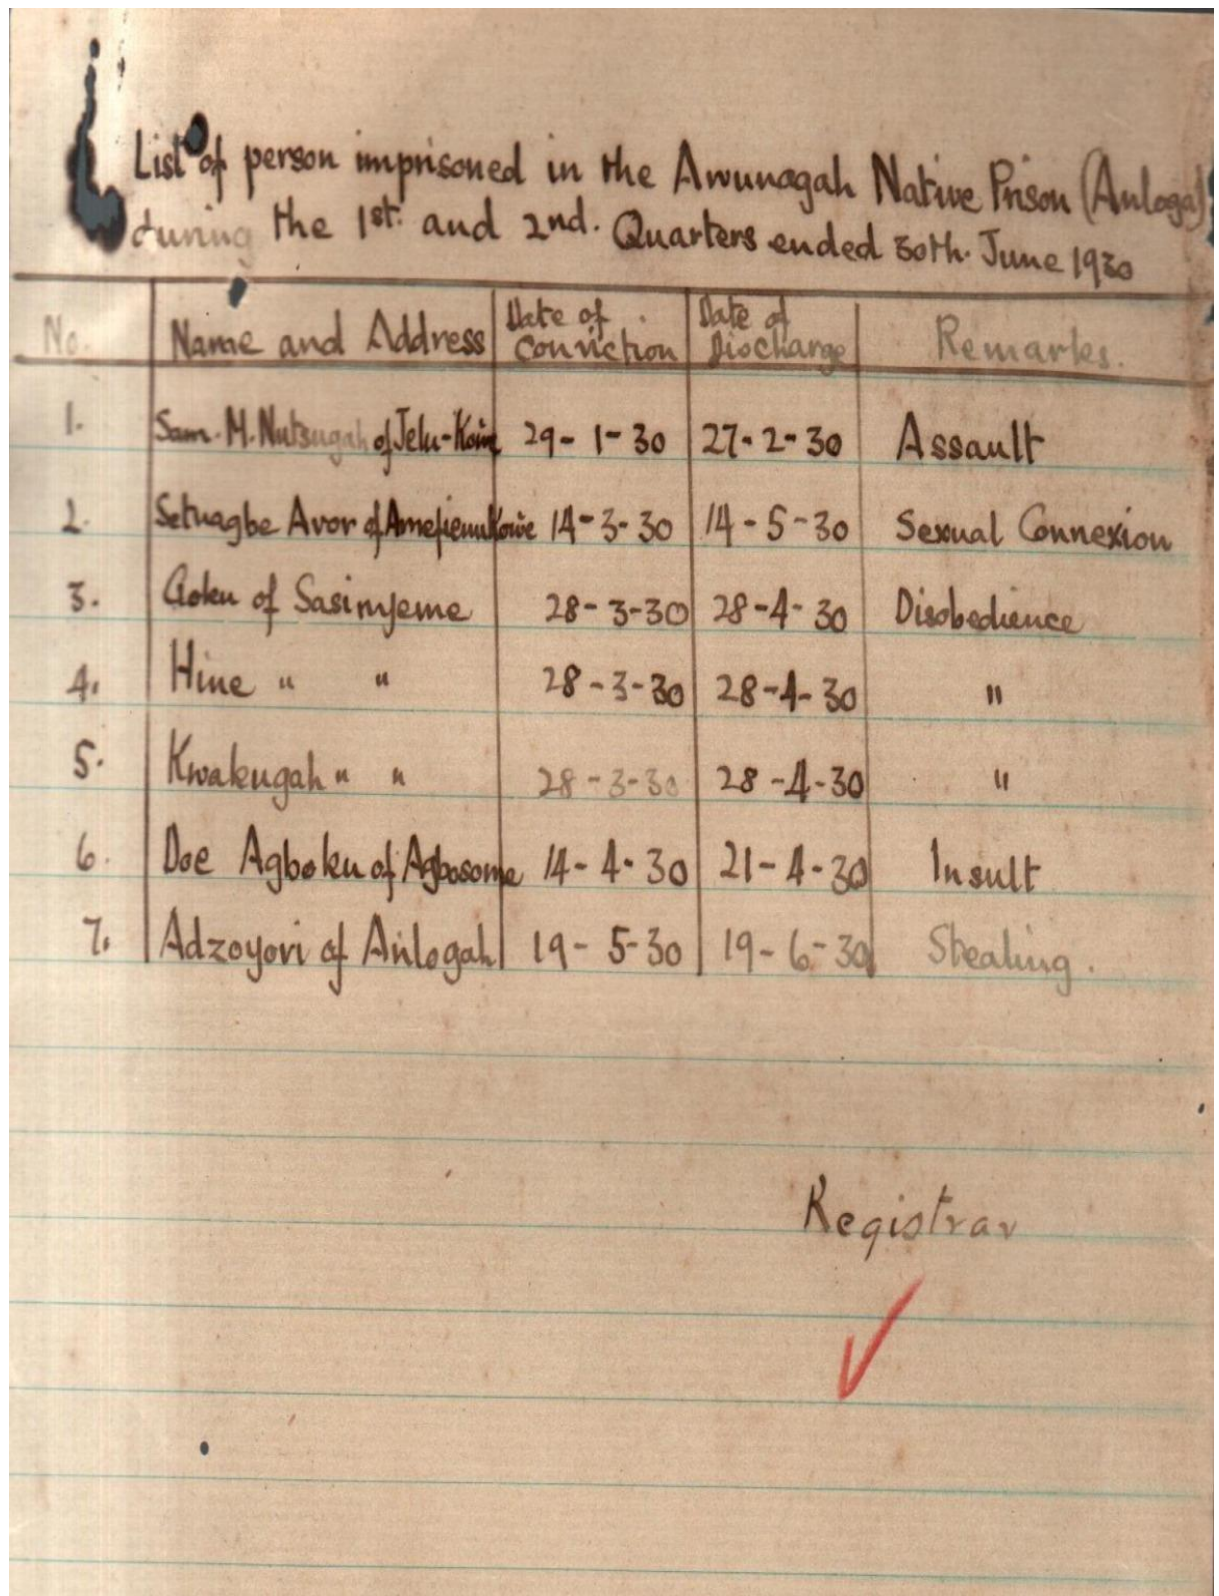 List of person imprisoned in the Awunagah Native Prison (Anloga)
during the 1st. and 2nd. Quarters ended 30th. June 1930
No. Name and Address Date of Conviction Date of Discharge Remarks.
1. Sam. M. Nutsugah of Jelu-Kowe 29-1-30 27-2-30 Assault
2. Setuagbe Avor of 14-3-30 14-5-30 Sexual Connexion
3. of 28-3-30 28-4-30 Disobedience
4. Hine " " 28-3-30 28-4-30 "
5. Kwakugah " " 28-3-30 28-4-30 "
6. Doe Agboku of Agbosome 14-4-30 21-4-30 Insult
7. Adzoyori of Anlogah 19-5-30 19-6-30 Stealing.
Registrar